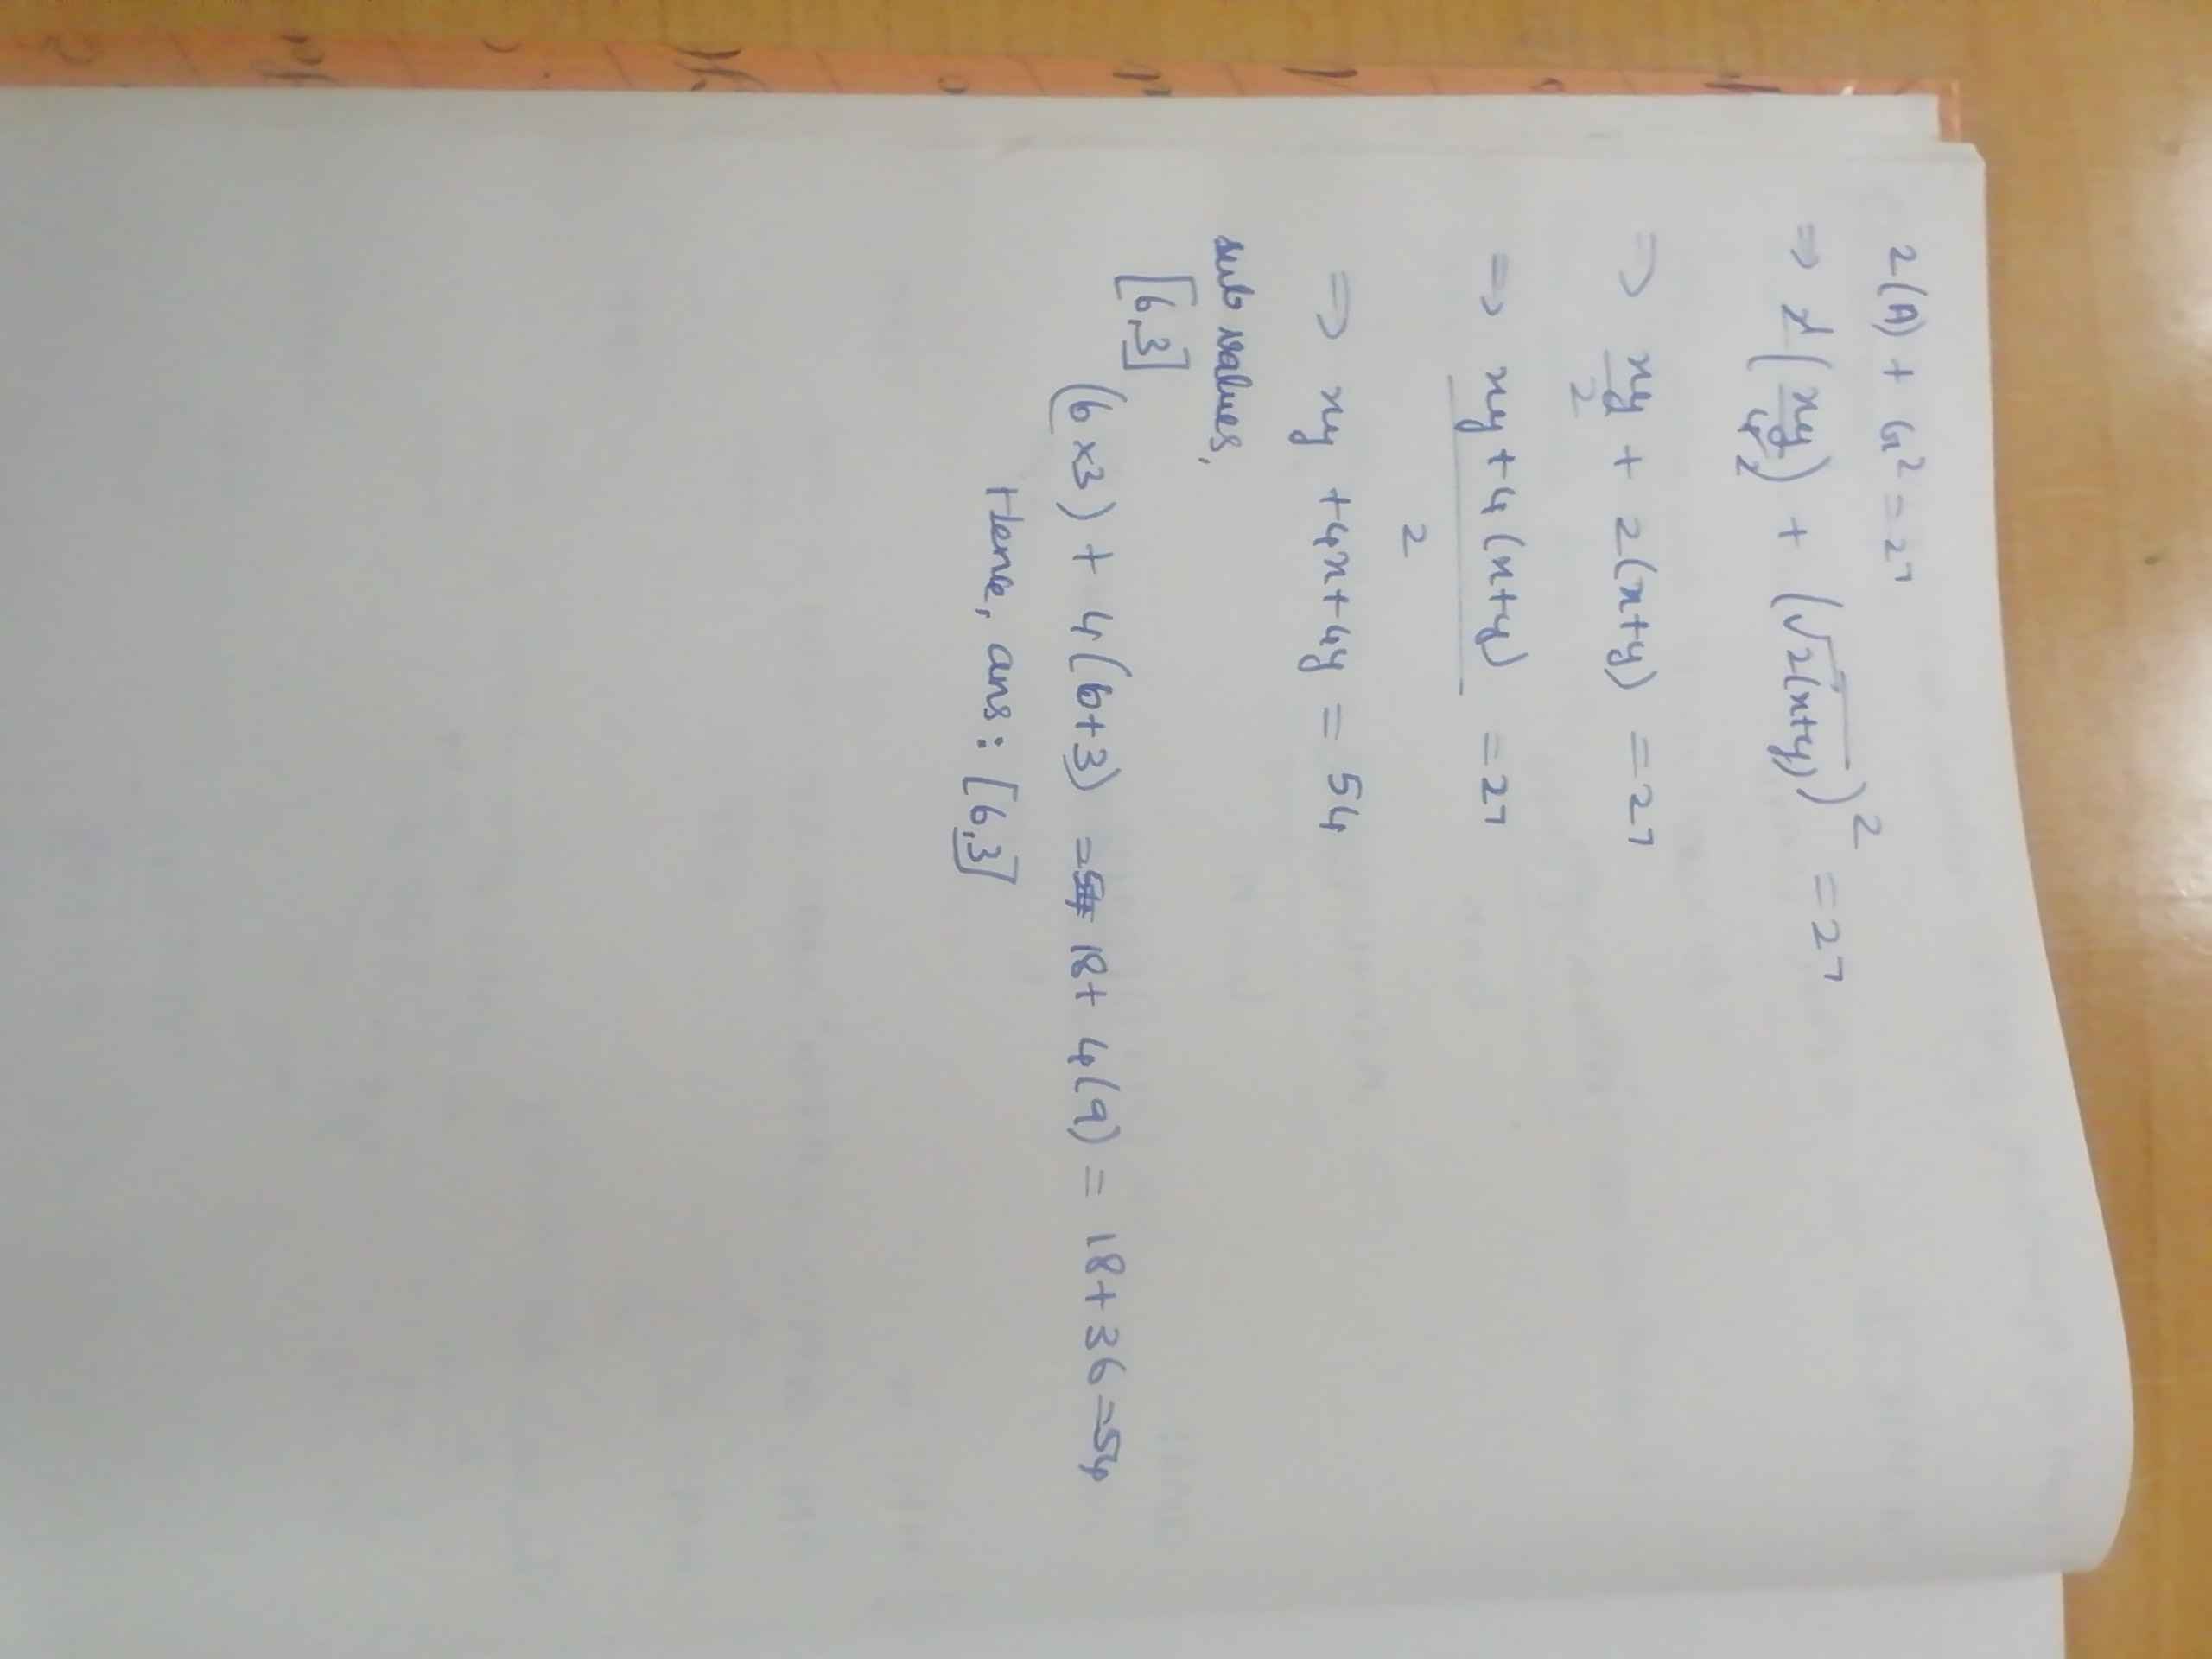 2(A) + G² = 27
⇒ 2(xy/4) + (√2(x+y))² = 27
⇒ xy/2 + 2(x+y) = 27
⇒ xy+4(x+y)/2 = 27
⇒ xy +4x+4y = 54
sub values,
[6,3]
(6×3) + 4(6+3) = 18+ 4(9) = 18+36=54
Hence, ans: [6,3]